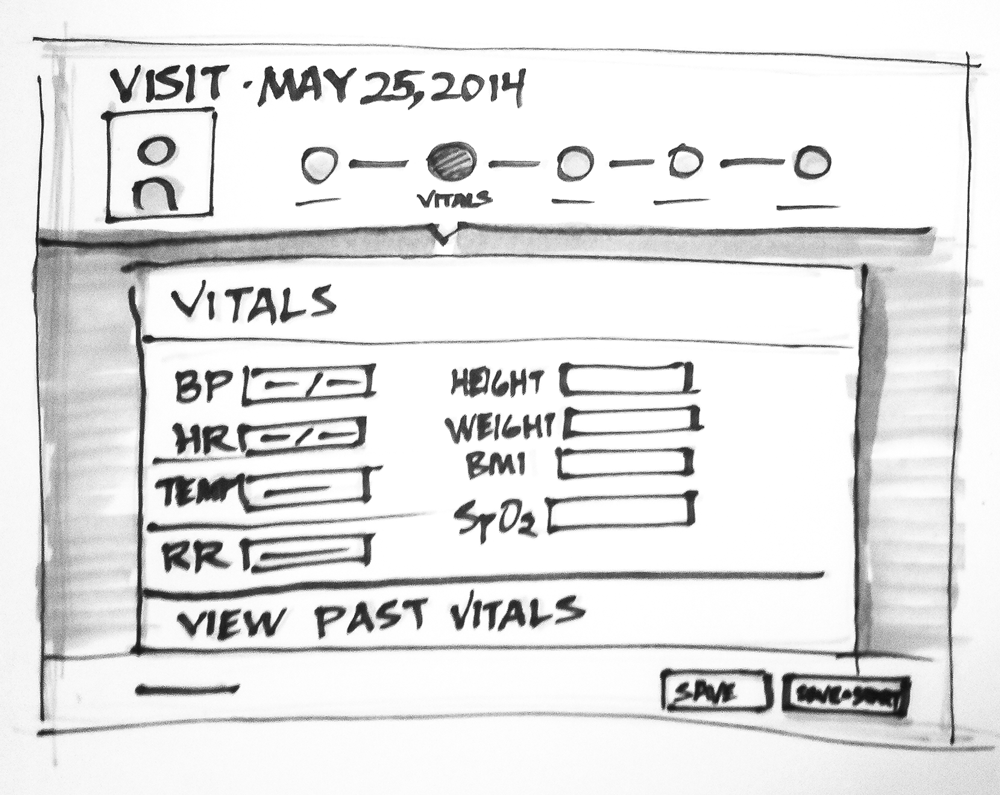 VISIT · MAY 25, 2014
VITALS
VITALS
BP - / - HEIGHT
HR - / - WEIGHT
TEMP BMI
RR SpO2
VIEW PAST VITALS
SAVE